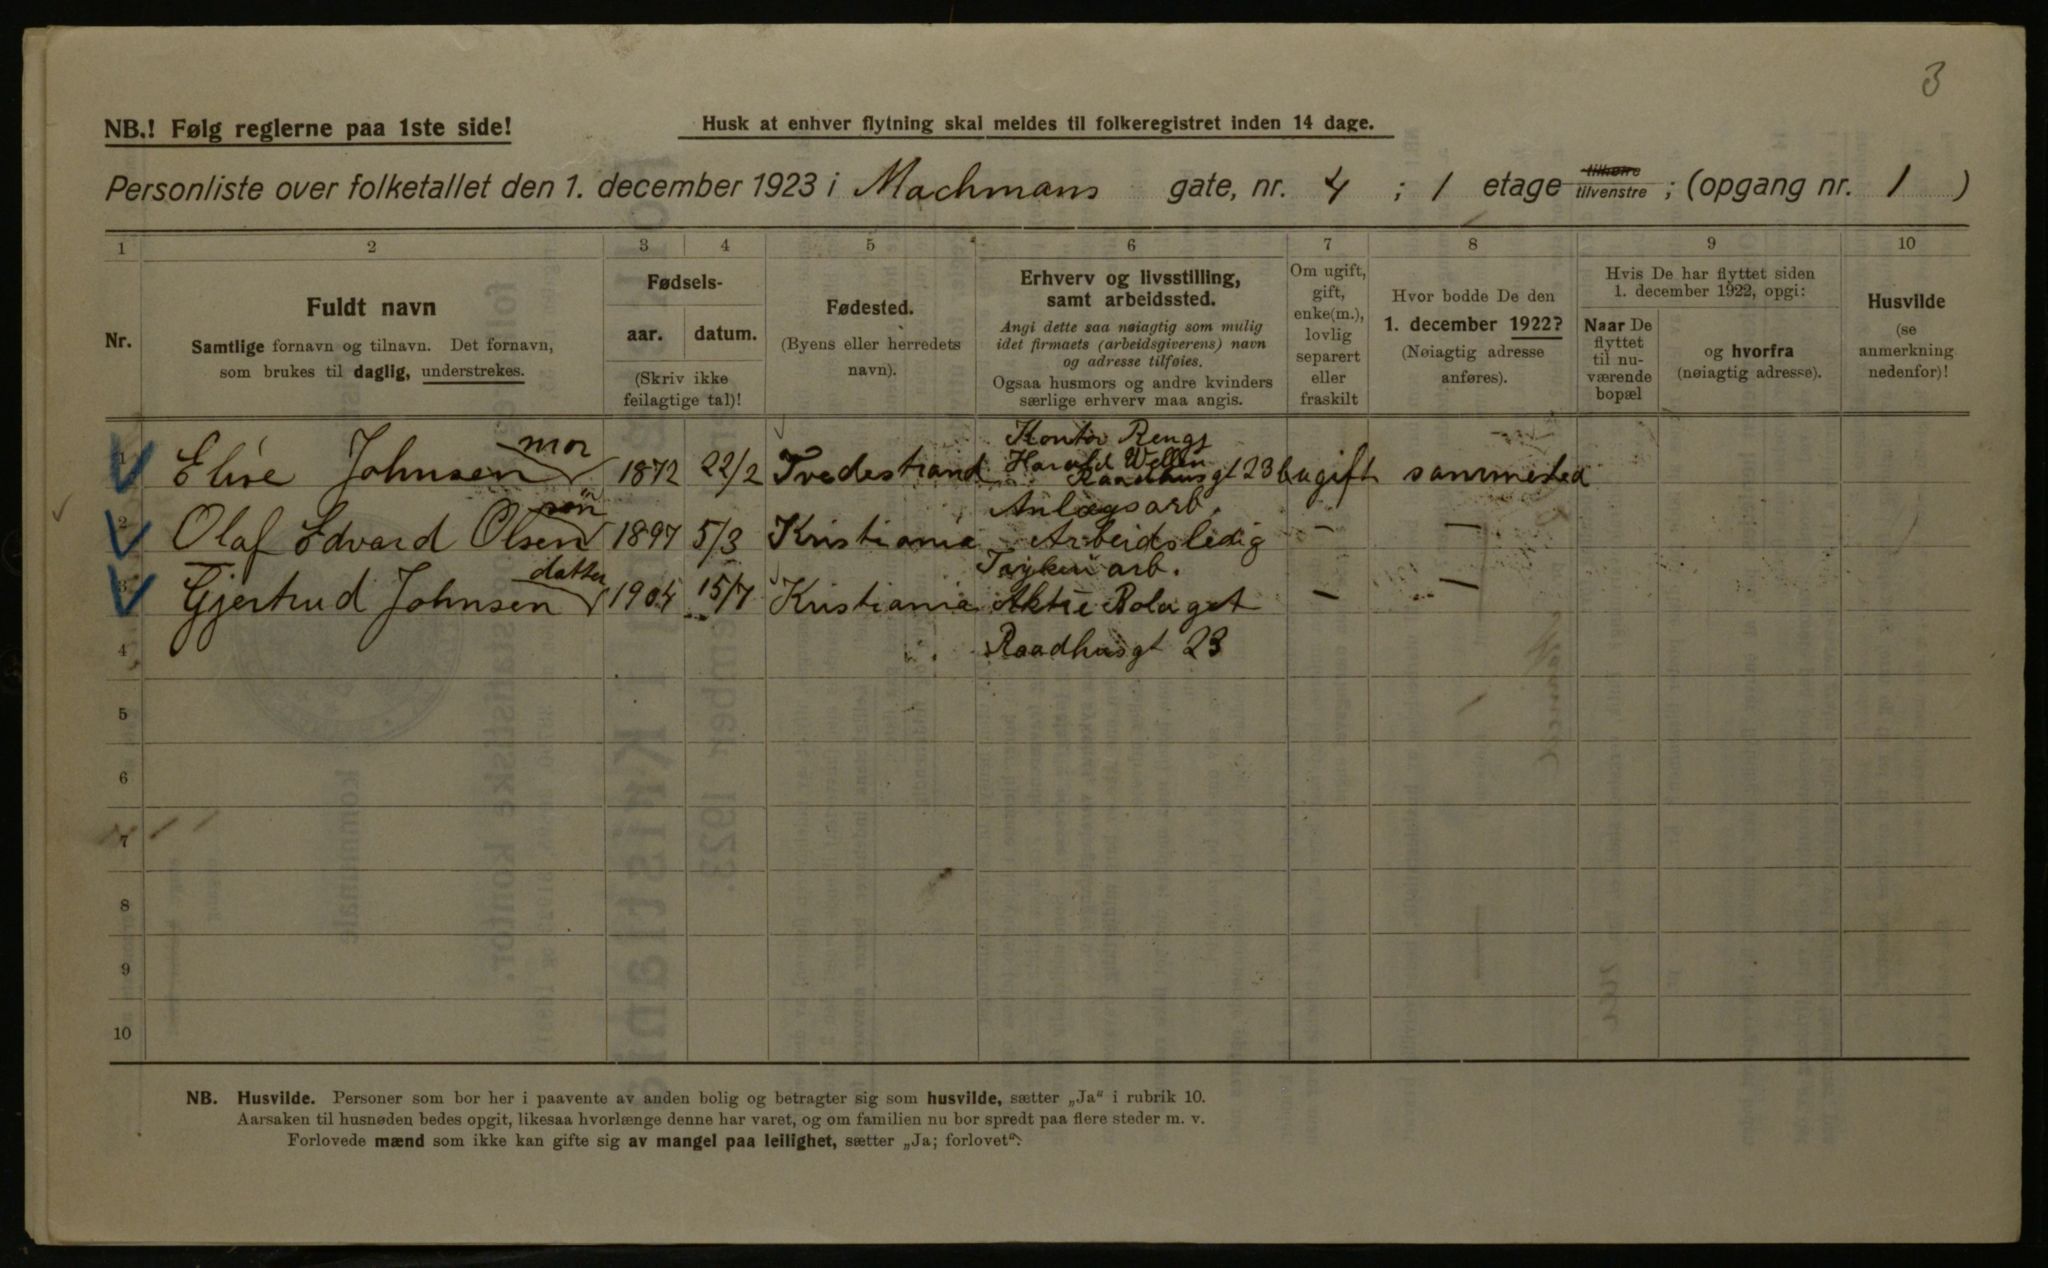 3
NB.! Følg reglerne paa 1ste side!
Husk at enhver flytning skal meldes til folkeregistret inden 14 dage.
Personliste over folketallet den 1. december 1923 i Machmans gate, nr. 4 ; 1 etage tilhøire tilvenstre ; (opgang nr. 1 )
1 2 3 4 5 6 7 8 9 10
Nr.
Fuldt navn
Samtlige fornavn og tilnavn. Det fornavn,
som brukes til daglig, understrekes.
Fødsels-
aar. datum.
(Skriv ikke
feilagtige tal)!
Fødested.
(Byens eller herredets
navn).
Erhverv og livsstilling,
samt arbeidssted.
Angi dette saa nøiagtig som mulig
idet firmaets (arbeidsgiverens) navn
og adresse tilføies.
Ogsaa husmors og andre kvinders
særlige erhverv maa angis.
Om ugift,
gift,
enke(m.),
lovlig
separert
eller
fraskilt
Hvor bodde De den
1. december 1922?
(Nøiagtig adresse
anføres).
Hvis De har flyttet siden
1. december 1922, opgi:
Naar De
flyttet
til nu-
værende
bopæl
og hvorfra
(nøiagtig adresse).
Husvilde
(se
anmerkning
nedenfor)!
mor Kontor Rengj
1 Elise Johnsen 1872 22/2 Tvedestrand Harald Raadhusgt 23 ugift sammested
søn Anlægsarb.
2 Olaf Edvard Olsen 1897 5/3 Kristiania Arbeidsledig – –
datter arb.
3 Gjertrud Johnsen 1904 15/7 Kristiania Aktie Bolaget – –
4 Raadhusgt 23
5
6
7
8
9
10
NB. Husvilde. Personer som bor her i paavente av anden bolig og betragter sig som husvilde, sætter „Ja“ i rubrik 10.
Aarsaken til husnøden bedes opgit, likesaa hvorlænge denne har varet, og om familien nu bor spredt paa flere steder m. v.
Forlovede mænd som ikke kan gifte sig av mangel paa leilighet, sætter „Ja; forlovet“.